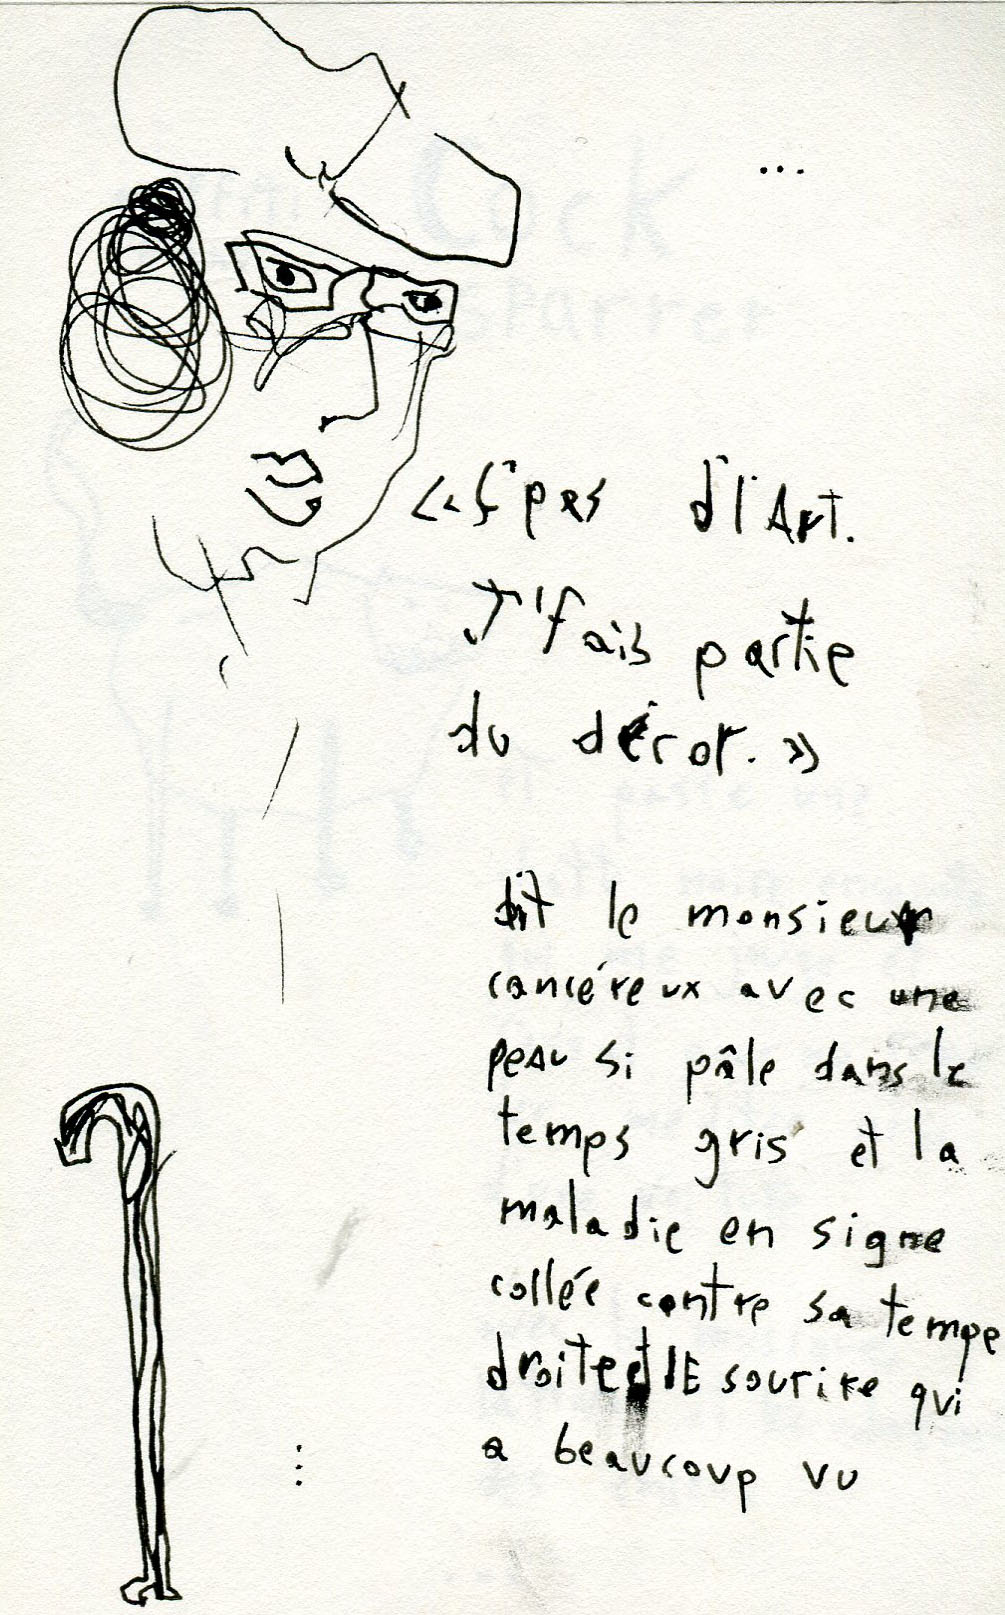 ...
<< Ç'pas d'l'Art.
J'fais partie
du décor. >>
dit le monsieur
cancéreux avec une
peau si pâle dans le
temps gris et la
maladie en signe
collée contre sa tempe
droite et lE sourire qui
a beaucoup vu
...